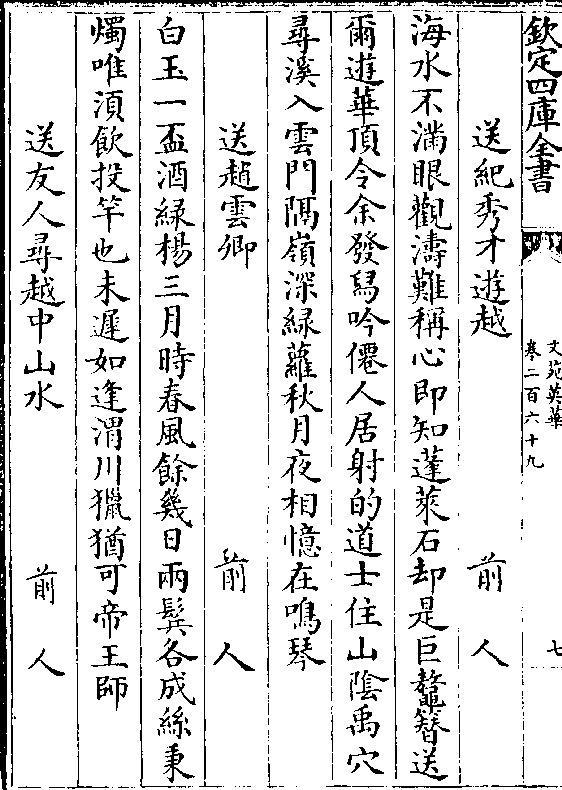 欽定四庫全書
文苑英華
卷二百六十九
七
送紀秀才遊越 前人
海水不滿眼觀濤難稱心即知蓬萊石却是巨鼇簪送
爾遊華頂令余發舄吟僊人居射的道士住山陰禹穴
尋溪入雲門隔嶺深綠蘿秋月夜相憶在鳴琴
送趙雲卿 前人
白玉一盃酒緑楊三月時春風餘幾日兩鬢各成絲秉
燭唯湏飲投竿也未遲如逢渭川獵猶可帝王師
送友人尋越中山水 前人